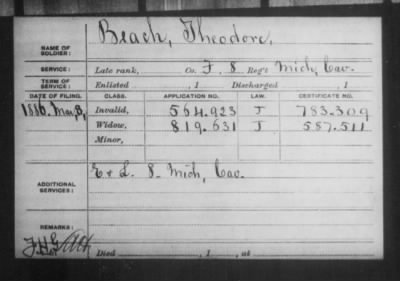 Beach, Theodore,
NAME OF SOLDIER:
SERVICE: Late rank, Co. F, 8 Reg't Mich, Cav.
TERM OF SERVICE: Enlisted , 1 Discharged , 1
DATE OF FILING. CLASS. APPLICATION NO. LAW. CERTIFICATE NO.
1886. Mar, 8, Invalid, 564.923 J 783.309
Widow, 819.631 J 587.511
Minor,
ADDITIONAL SERVICES: E & L. 8. Mich, Cav.
REMARKS:
Died , 1 , at